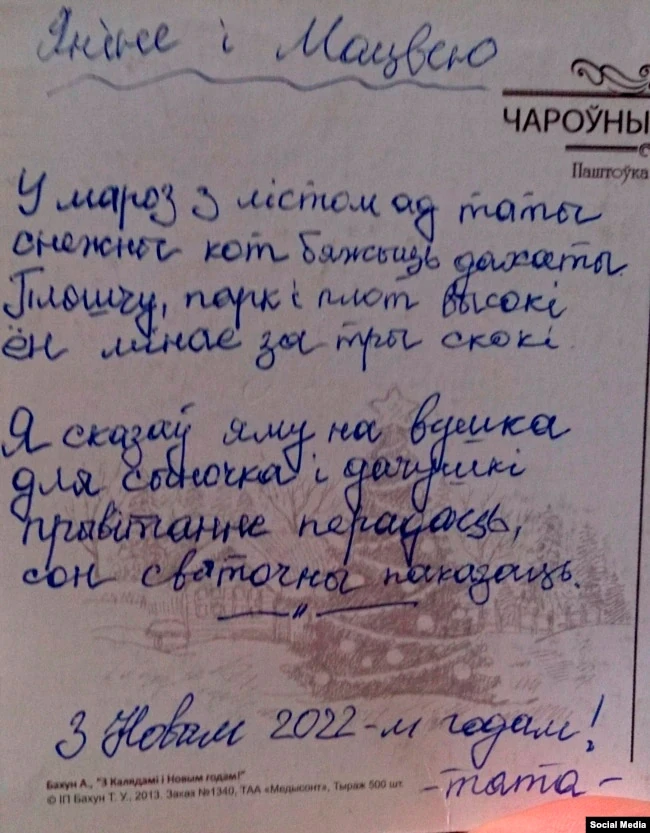 Яніне і Мацвею
ЧАРОЎНЫ
Паштоўка
У мароз з лістом ад таты
снежны кот бяжыць дахаты.
Плошчу, парк і плот высокі
ён мінае за тры скокі.
Я сказаў яму на вушка
для сыночка і дачушкі
прывітанне перадаць,
сон святочны паказаць.
З Новам 2022-м годам!
- тата -
Бахун А., "З Калядамі і Новым годам!"
© ІП Бахун Т. У., 2013. Заказ №1340, ТАА «Медысонт», Тыраж 500 шт.
Social Media